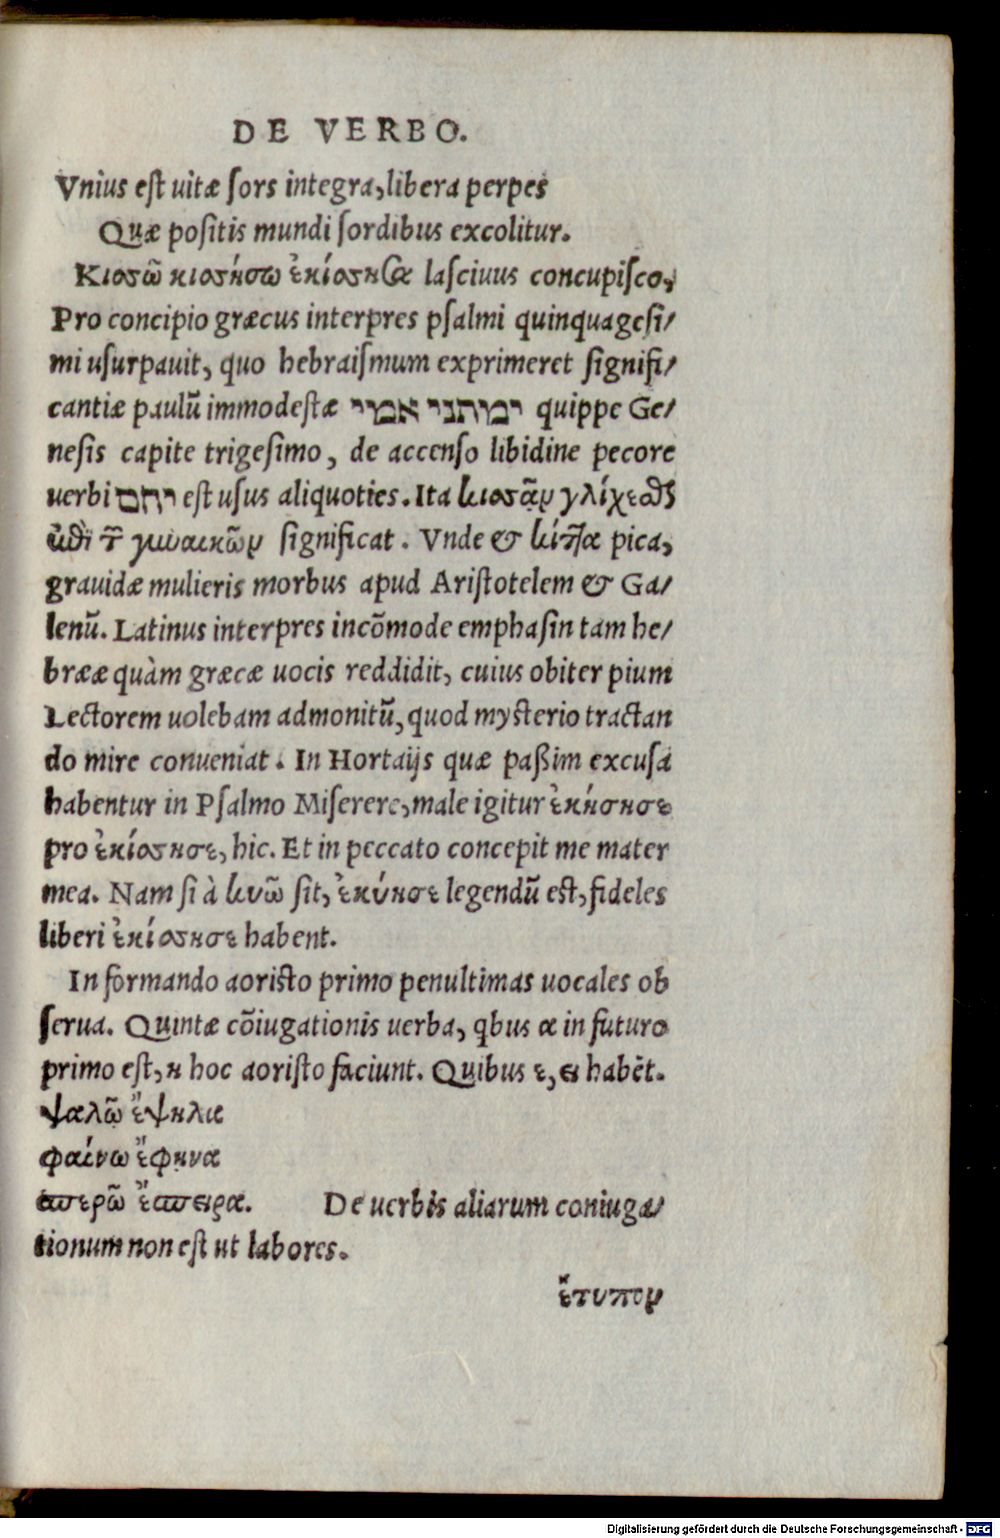 DE VERBO.
Vnius est uitæ sors integra, libera perpes
Quæ positis mundi sordibus excolitur.
Κιοσῶ κιοσήσω ἐκίοσησα lasciuus concupisco,
Pro concipio græcus interpres psalmi quinquagesi/
mi usurpauit, quo hebraismum exprimeret signifi/
cantiæ paulũ immodestæ יחמתני אמי quippe Ge/
nesis capite trigesimo, de accenso libidine pecore
uerbi יחם est usus aliquoties. Ita κιοσᾷν γλίχεσθαι
ἐπὶ τ γυναικῶν significat. Vnde & κίττα pica,
grauidæ mulieris morbus apud Aristotelem & Ga/
lenũ. Latinus interpres incõmode emphasin tam he/
brææ quàm græcæ uocis reddidit, cuius obiter pium
Lectorem uolebam admonitũ, quod mysterio tractan
do mire conueniat. In Hortaijs quæ paßim excusa
habentur in Psalmo Miserere, male igitur ἐκήσησε
pro ἐκίοσησε, hic. Et in peccato concepit me mater
mea. Nam si à κυῶ sit, ἐκύησε legendũ est, fideles
liberi ἐκίοσησε habent.
In formando aoristo primo penultimas uocales ob
serua. Quintæ cõiugationis uerba, qbus α in futuro
primo est, η hoc aoristo faciunt. Quibus ε, ει habẽt.
ψαλῶ ἔψηλα
φαίνω ἔφηνα
σπερῶ ἔσπειρα. De uerbis aliarum coniuga/
tionum non est ut labores.
ἔτυπον
Digitalisierung gefördert durch die Deutsche Forschungsgemeinschaft - DFG